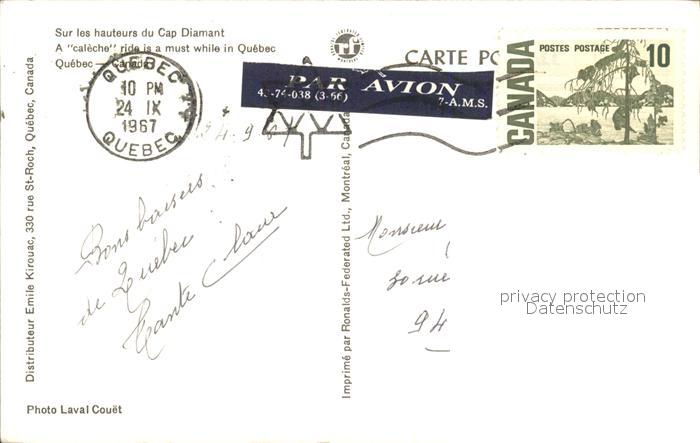 Sur les hauteurs du Cap Diamant
A "calèche" ride is a must while in Québec
Québec — Canada
CARTE PO
QUÉBEC
10 PM
24 IX
1967
QUEBEC
PAR AVION
43-74-038 (3-66)
7-A.M.S.
CANADA
POSTES POSTAGE
10
24.9.67
Bons baisers
de Québec
Tante Claire
Monsieur
30 rue
94
privacy protection
Datenschutz
Distributeur Emile Kirouac, 330 rue St-Roch, Québec, Canada
Imprimé par Ronalds-Federated Ltd., Montréal, Canada
Photo Laval Couët